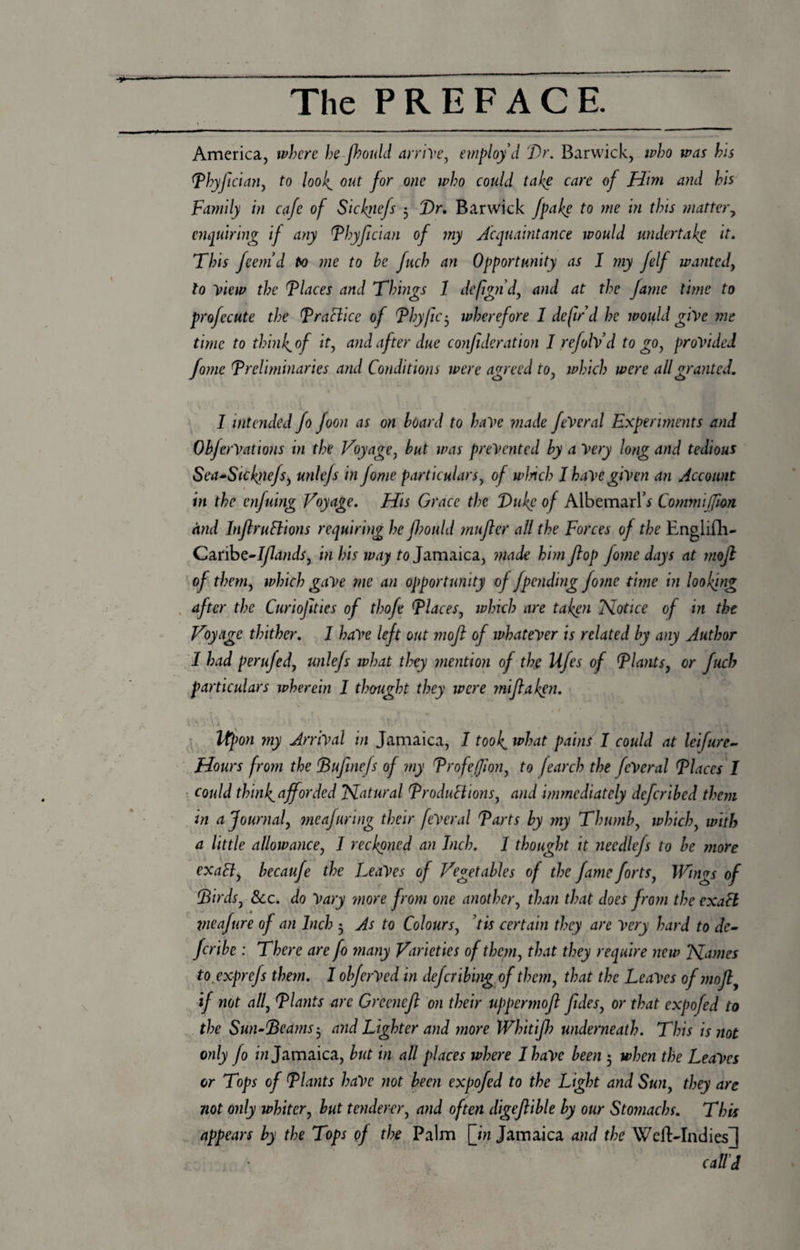 The PREFACE.
America, where he ſhould arrive, employ'd Dr. Barwick, who was his
Phyſician, to look out for one who could take care of Him and his
Family in caſe of Sickneſs; Dr. Barwick ſpake to me in this matter,
enquiring if any Phyſician of my Acquaintance would undertake it.
This ſeem'd to me to be ſuch an Opportunity as I my ſelf wanted,
to view the Places and Things I deſign'd, and at the ſame time to
proſecute the Practice of Phyſic; wherefore I deſir'd he would give me
time to think of it, and after due conſideration I reſolv'd to go, provided
ſome Preliminaries and Conditions were agreed to, which were all granted.
I intended ſo ſoon as on board to have made ſeveral Experiments and
Obſervations in the Voyage, but was prevented by a very long and tedious
Sea-Sickneſs, unleſs in ſome particulars, of which I have given an Account
in the enſuing Voyage. His Grace the Duke of Albemarl's Commiſſion
and Inſtructions requiring he ſhould muſter all the Forces of the Engliſh-
Caribe-Iſlands, in his way to Jamaica, made him ſtop ſome days at moſt
of them, which gave me an opportunity of ſpending ſome time in looking
after the Curioſities of thoſe Places, which are taken Notice of in the
Voyage thither. I have left out moſt of whatever is related by any Author
I had peruſed, unleſs what they mention of the Uſes of Plants, or ſuch
particulars wherein I thought they were miſtaken.
Upon my Arrival in Jamaica, I took what pains I could at leiſure-
Hours from the Buſineſs of my Profeſſion, to ſearch the ſeveral Places I
could think afforded Natural Productions, and immediately deſcribed them
in a Journal, meaſuring their ſeveral Parts by my Thumb, which, with
a little allowance, I reckoned an Inch. I thought it needleſs to be more
exact, becauſe the Leaves of Vegetables of the ſame ſorts, Wings of
Birds, &c. do vary more from one another, than that does from the exact
meaſure of an Inch; As to Colours, 'tis certain they are very hard to de-
ſcribe: There are ſo many Varieties of them, that they require new Names
to expreſs them. I obſerved in deſcribing of them, that the Leaves of moſt,
if not all, Plants are Greeneſt on their uppermoſt ſides, or that expoſed to
the Sun-Beams; and Lighter and more Whitiſh underneath. This is not
only ſo in Jamaica, but in all places where I have been; when the Leaves
or Tops of Plants have not been expoſed to the Light and Sun, they are
not only whiter, but tenderer, and often digeſtible by our Stomachs. This
appears by the Tops of the Palm [in Jamaica and the Weſt-Indies]
call'd